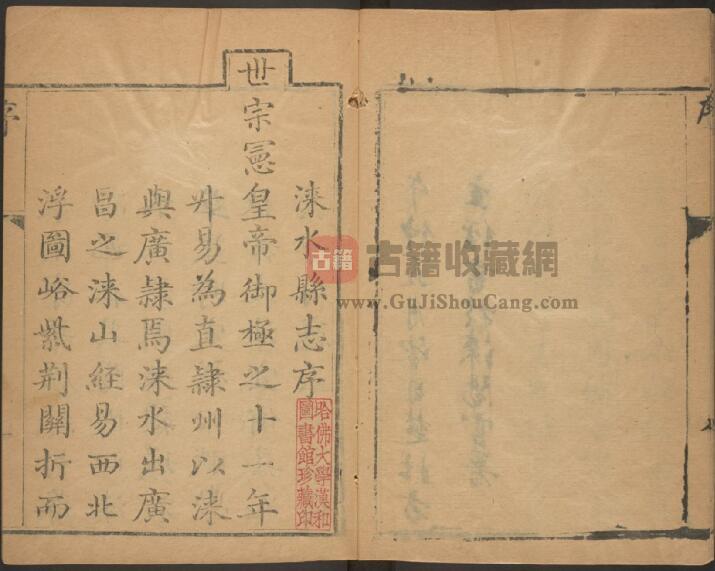 淶水縣志序
世宗憲皇帝御極之十一年
升易為直隸州以淶
與廣隸焉淶水出廣
昌之淶山經易西北
浮圖峪紫荆關折而
哈佛大學漢和
圖書館珍藏印
序
古籍
古籍收藏網
www.GuJiShouCang.com